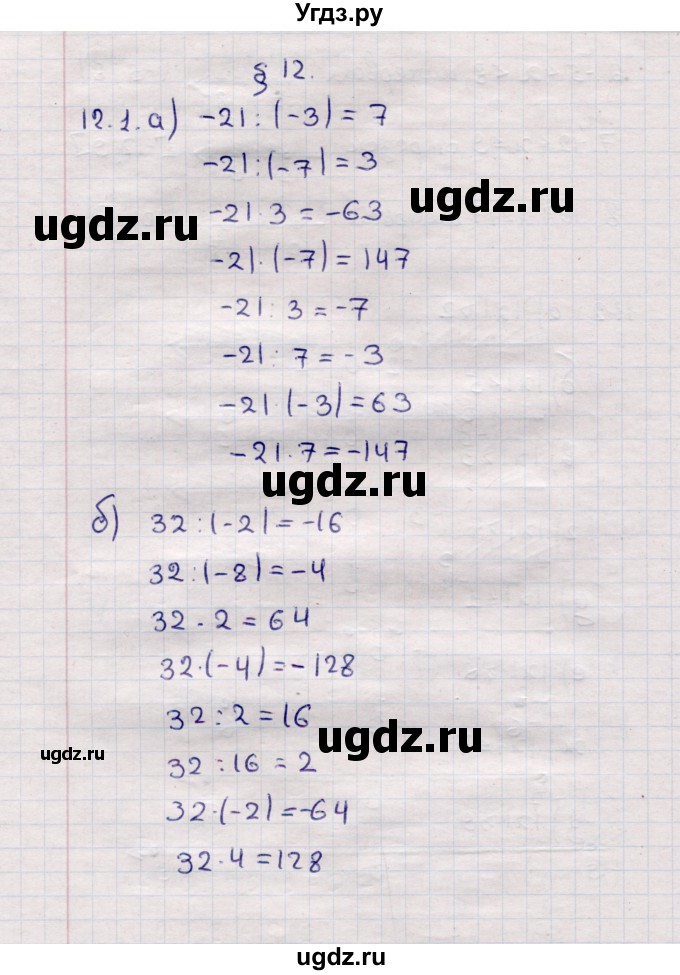 Угдз.ру
§ 12.
12.1. а) -21 : (-3) = 7
-21 : (-7) = 3
ugdz.ru
-21 · 3 = -63
ugdz.ru
-21 · (-7) = 147
-21 : 3 = -7
-21 : 7 = -3
-21 · (-3) = 63
-21 · 7 = -147
ugdz.ru
б) 32 : (-2) = -16
32 : (-8) = -4
32 · 2 = 64
32 · (-4) = -128
32 : 2 = 16
ugdz.ru
ugdz.ru
32 : 16 = 2
32 · (-2) = -64
32 · 4 = 128
ugdz.ru